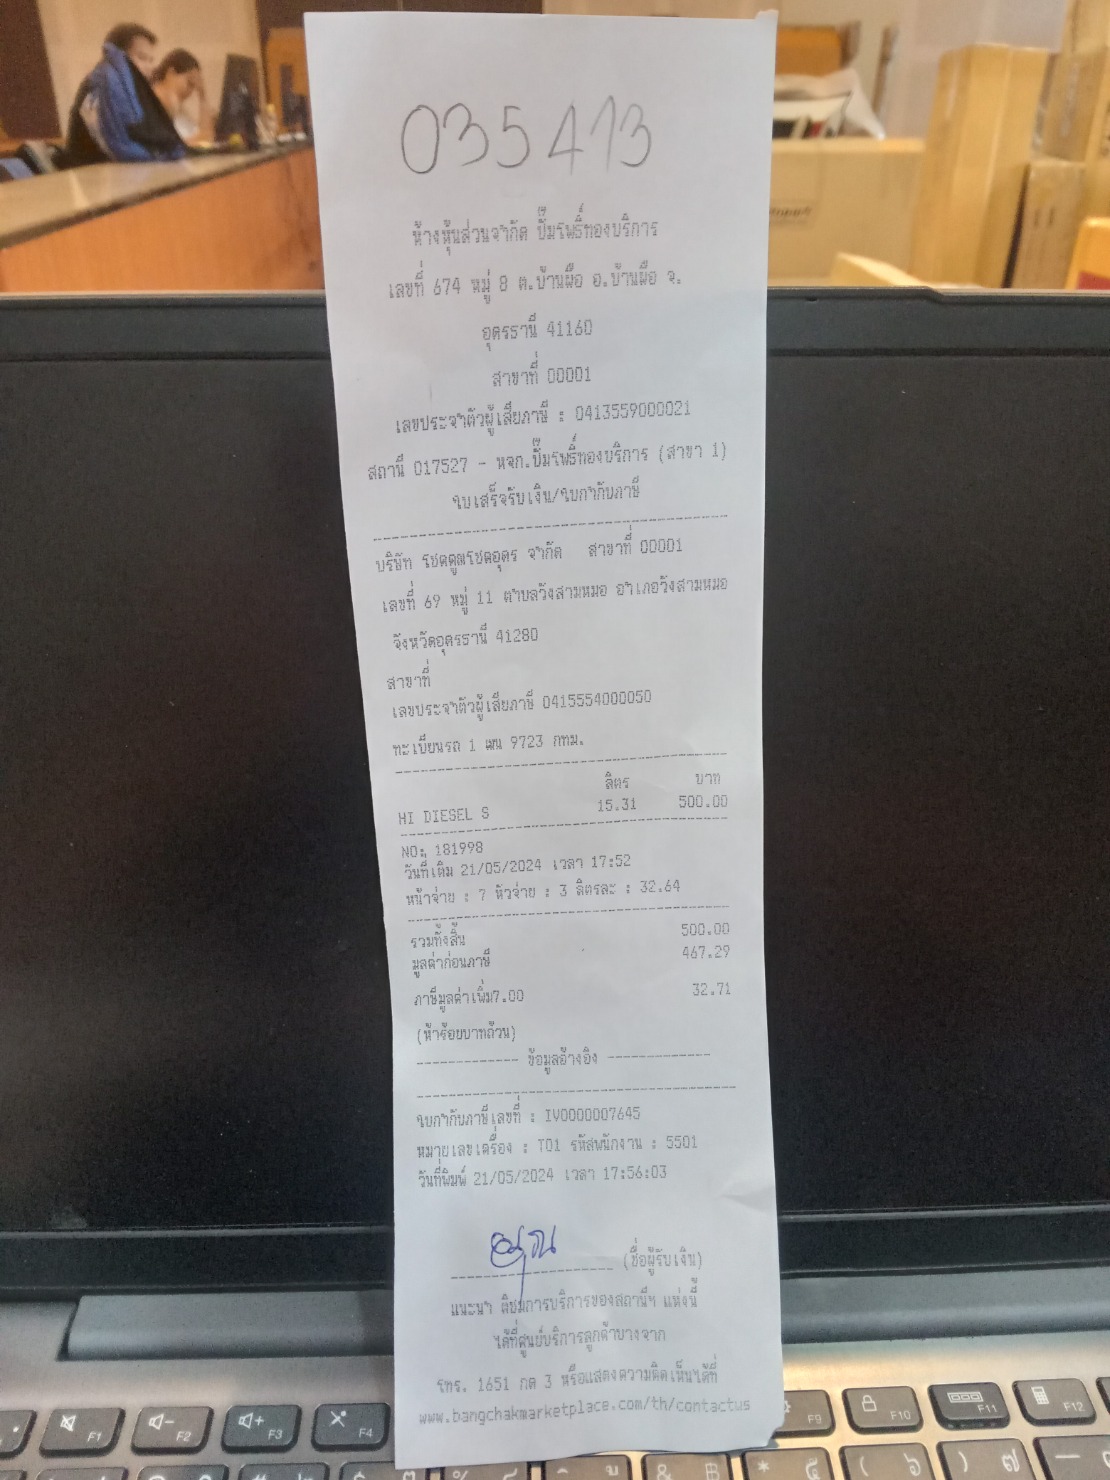 035473
ห้างหุ้นส่วนจำกัด ปั๊มโพธิ์ทองบริการ
เลขที่ 674 หมู่ 8 ต.บ้านผือ อ.บ้านผือ จ.
อุดรธานี 41160
สาขาที่ 00001
เลขประจำตัวผู้เสียภาษี : 0413559000021
สถานี 017527 - หจก.ปั๊มโพธิ์ทองบริการ (สาขา 1)
ใบเสร็จรับเงิน/ใบกำกับภาษี
บริษัท โชคคูณโชคอุดร จำกัด สาขาที่ 00001
เลขที่ 69 หมู่ 11 ตำบลวังสามหมอ อำเภอวังสามหมอ
จังหวัดอุดรธานี 41280
สาขาที่
เลขประจำตัวผู้เสียภาษี 0415554000050
ทะเบียนรถ 1 ฒน 9723 กทม.
ลิตร บาท
HI DIESEL S 15.31 500.00
NO: 181998
วันที่เติม 21/05/2024 เวลา 17:52
หน้าจ่าย : 7 หัวจ่าย : 3 ลิตรละ : 32.64
รวมทั้งสิ้น 500.00
มูลค่าก่อนภาษี 467.29
ภาษีมูลค่าเพิ่ม7.00 32.71
(ห้าร้อยบาทถ้วน)
------------- ข้อมูลอ้างอิง -------------
ใบกำกับภาษีเลขที่ : IV0000007645
หมายเลขเครื่อง : T01 รหัสพนักงาน : 5501
วันที่พิมพ์ 21/05/2024 เวลา 17:56:03
(ชื่อผู้รับเงิน)
แนะนำ ติชมการบริการของสถานีฯ แห่งนี้
ได้ที่ศูนย์บริการลูกค้าบางจาก
โทร. 1651 กด 3 หรือแสดงความคิดเห็นได้ที่
www.bangchakmarketplace.com/th/contactus
F1 F2 F3 F4 F9 F10 F11 F12